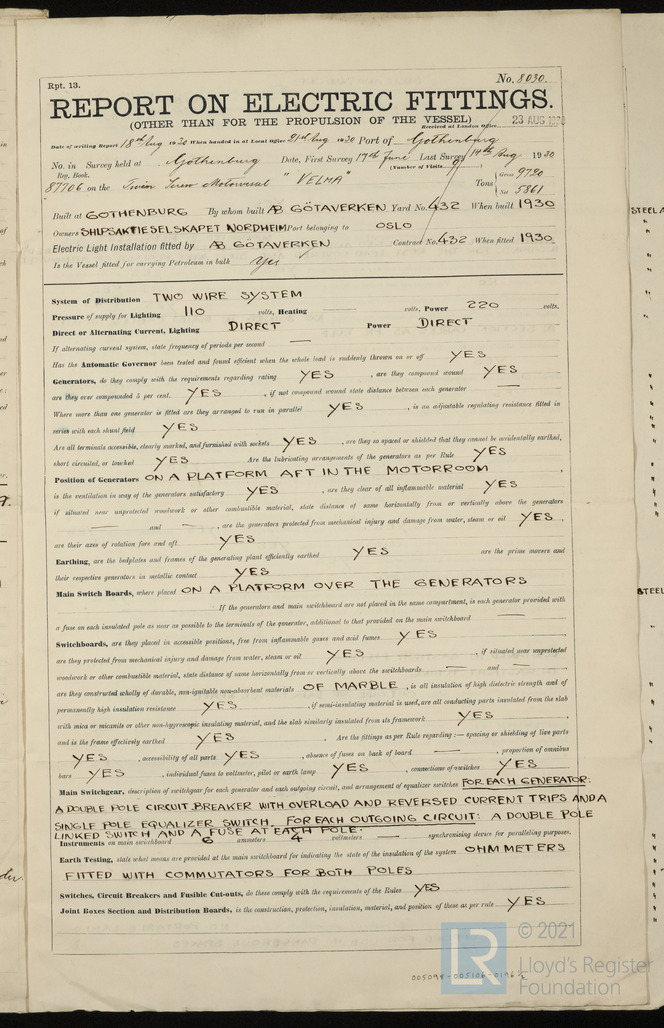 Rpt. 13.
No. 8030.
REPORT ON ELECTRIC FITTINGS.
(OTHER THAN FOR THE PROPULSION OF THE VESSEL)
Received at London Office 23 AUG 1930
Date of writing Report 18th Aug 1930 When handed in at Local Office 21st Aug 1930 Port of Gothenburg
No. in Survey held at Gothenburg Date, First Survey 17th June Last Survey 14th Aug 1930
Reg. Book. (Number of Visits 9)
87706 on the Twin Screw Motorvessel "VELMA" Tons Gross 9720 Net 5861
Built at GOTHENBURG By whom built AB GÖTAVERKEN Yard No. 432 When built 1930
Owners SKIPSAKTIESELSKAPET NORDHEIM Port belonging to OSLO
Electric Light Installation fitted by AB GÖTAVERKEN Contract No. 432 When fitted 1930
Is the Vessel fitted for carrying Petroleum in bulk Yes
System of Distribution TWO WIRE SYSTEM
Pressure of supply for Lighting 110 volts, Heating — volts, Power 220 volts.
Direct or Alternating Current, Lighting DIRECT Power DIRECT
If alternating current system, state frequency of periods per second —
Has the Automatic Governor been tested and found efficient when the whole load is suddenly thrown on or off YES
Generators, do they comply with the requirements regarding rating YES, are they compound wound YES
are they over compounded 5 per cent. YES, if not compound wound state distance between each generator —
Where more than one generator is fitted are they arranged to run in parallel YES, is an adjustable regulating resistance fitted in
series with each shunt field YES
Are all terminals accessible, clearly marked, and furnished with sockets YES, are they so spaced or shielded that they cannot be accidentally earthed,
short circuited, or touched YES Are the lubricating arrangements of the generators as per Rule YES
Position of Generators ON A PLATFORM AFT IN THE MOTORROOM,
is the ventilation in way of the generators satisfactory YES, are they clear of all inflammable material YES
if situated near unprotected woodwork or other combustible material, state distance of same horizontally from or vertically above the generators
— and —, are the generators protected from mechanical injury and damage from water, steam or oil YES,
are their axes of rotation fore and aft YES
Earthing, are the bedplates and frames of the generating plant efficiently earthed YES are the prime movers and
their respective generators in metallic contact YES
Main Switch Boards, where placed ON A PLATFORM OVER THE GENERATORS
If the generators and main switchboard are not placed in the same compartment, is each generator provided with
a fuse on each insulated pole as near as possible to the terminals of the generator, additional to that provided on the main switchboard —
Switchboards, are they placed in accessible positions, free from inflammable gases and acid fumes YES
are they protected from mechanical injury and damage from water, steam or oil YES, if situated near unprotected
woodwork or other combustible material, state distance of same horizontally from or vertically above the switchboards — and —
are they constructed wholly of durable, non-ignitable non-absorbent materials OF MARBLE, is all insulation of high dielectric strength and of
permanently high insulation resistance YES, if semi-insulating material is used, are all conducting parts insulated from the slab
with mica or micanite or other non-hygroscopic insulating material, and the slab similarly insulated from its framework YES,
and is the frame effectively earthed YES Are the fittings as per Rule regarding:— spacing or shielding of live parts
YES, accessibility of all parts YES, absence of fuses on back of board —, proportion of omnibus
bars YES, individual fuses to voltmeter, pilot or earth lamp YES, connections of switches YES
Main Switchgear, description of switchgear for each generator and each outgoing circuit, and arrangement of equalizer switches FOR EACH GENERATOR:
A DOUBLE POLE CIRCUIT BREAKER WITH OVERLOAD AND REVERSED CURRENT TRIPS AND A
SINGLE POLE EQUALIZER SWITCH. FOR EACH OUTGOING CIRCUIT: A DOUBLE POLE
LINKED SWITCH AND A FUSE AT EACH POLE.
Instruments on main switchboard 6 ammeters 4 voltmeters — synchronising device for paralleling purposes.
Earth Testing, state what means are provided at the main switchboard for indicating the state of the insulation of the system OHMMETERS
FITTED WITH COMMUTATORS FOR BOTH POLES
Switches, Circuit Breakers and Fusible Cut-outs, do these comply with the requirements of the Rules YES
Joint Boxes Section and Distribution Boards, is the construction, protection, insulation, material, and position of these as per rule YES
005098-005106-0196 1/2
LR
© 2021
Lloyd's Register
Foundation
STEEL